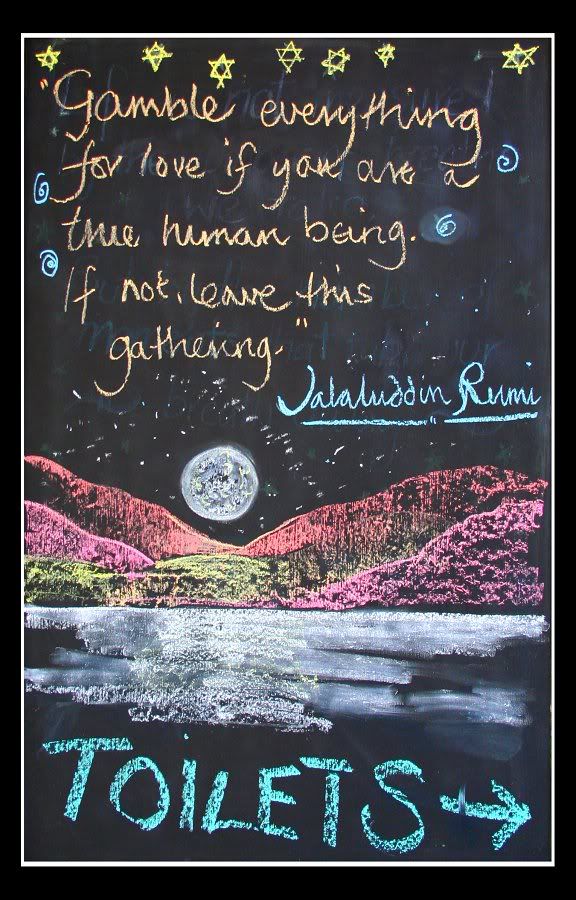 "Gamble everything
for love if you are a
true human being.
If not, leave this
gathering."
Jalaluddin Rumi
TOILETS →